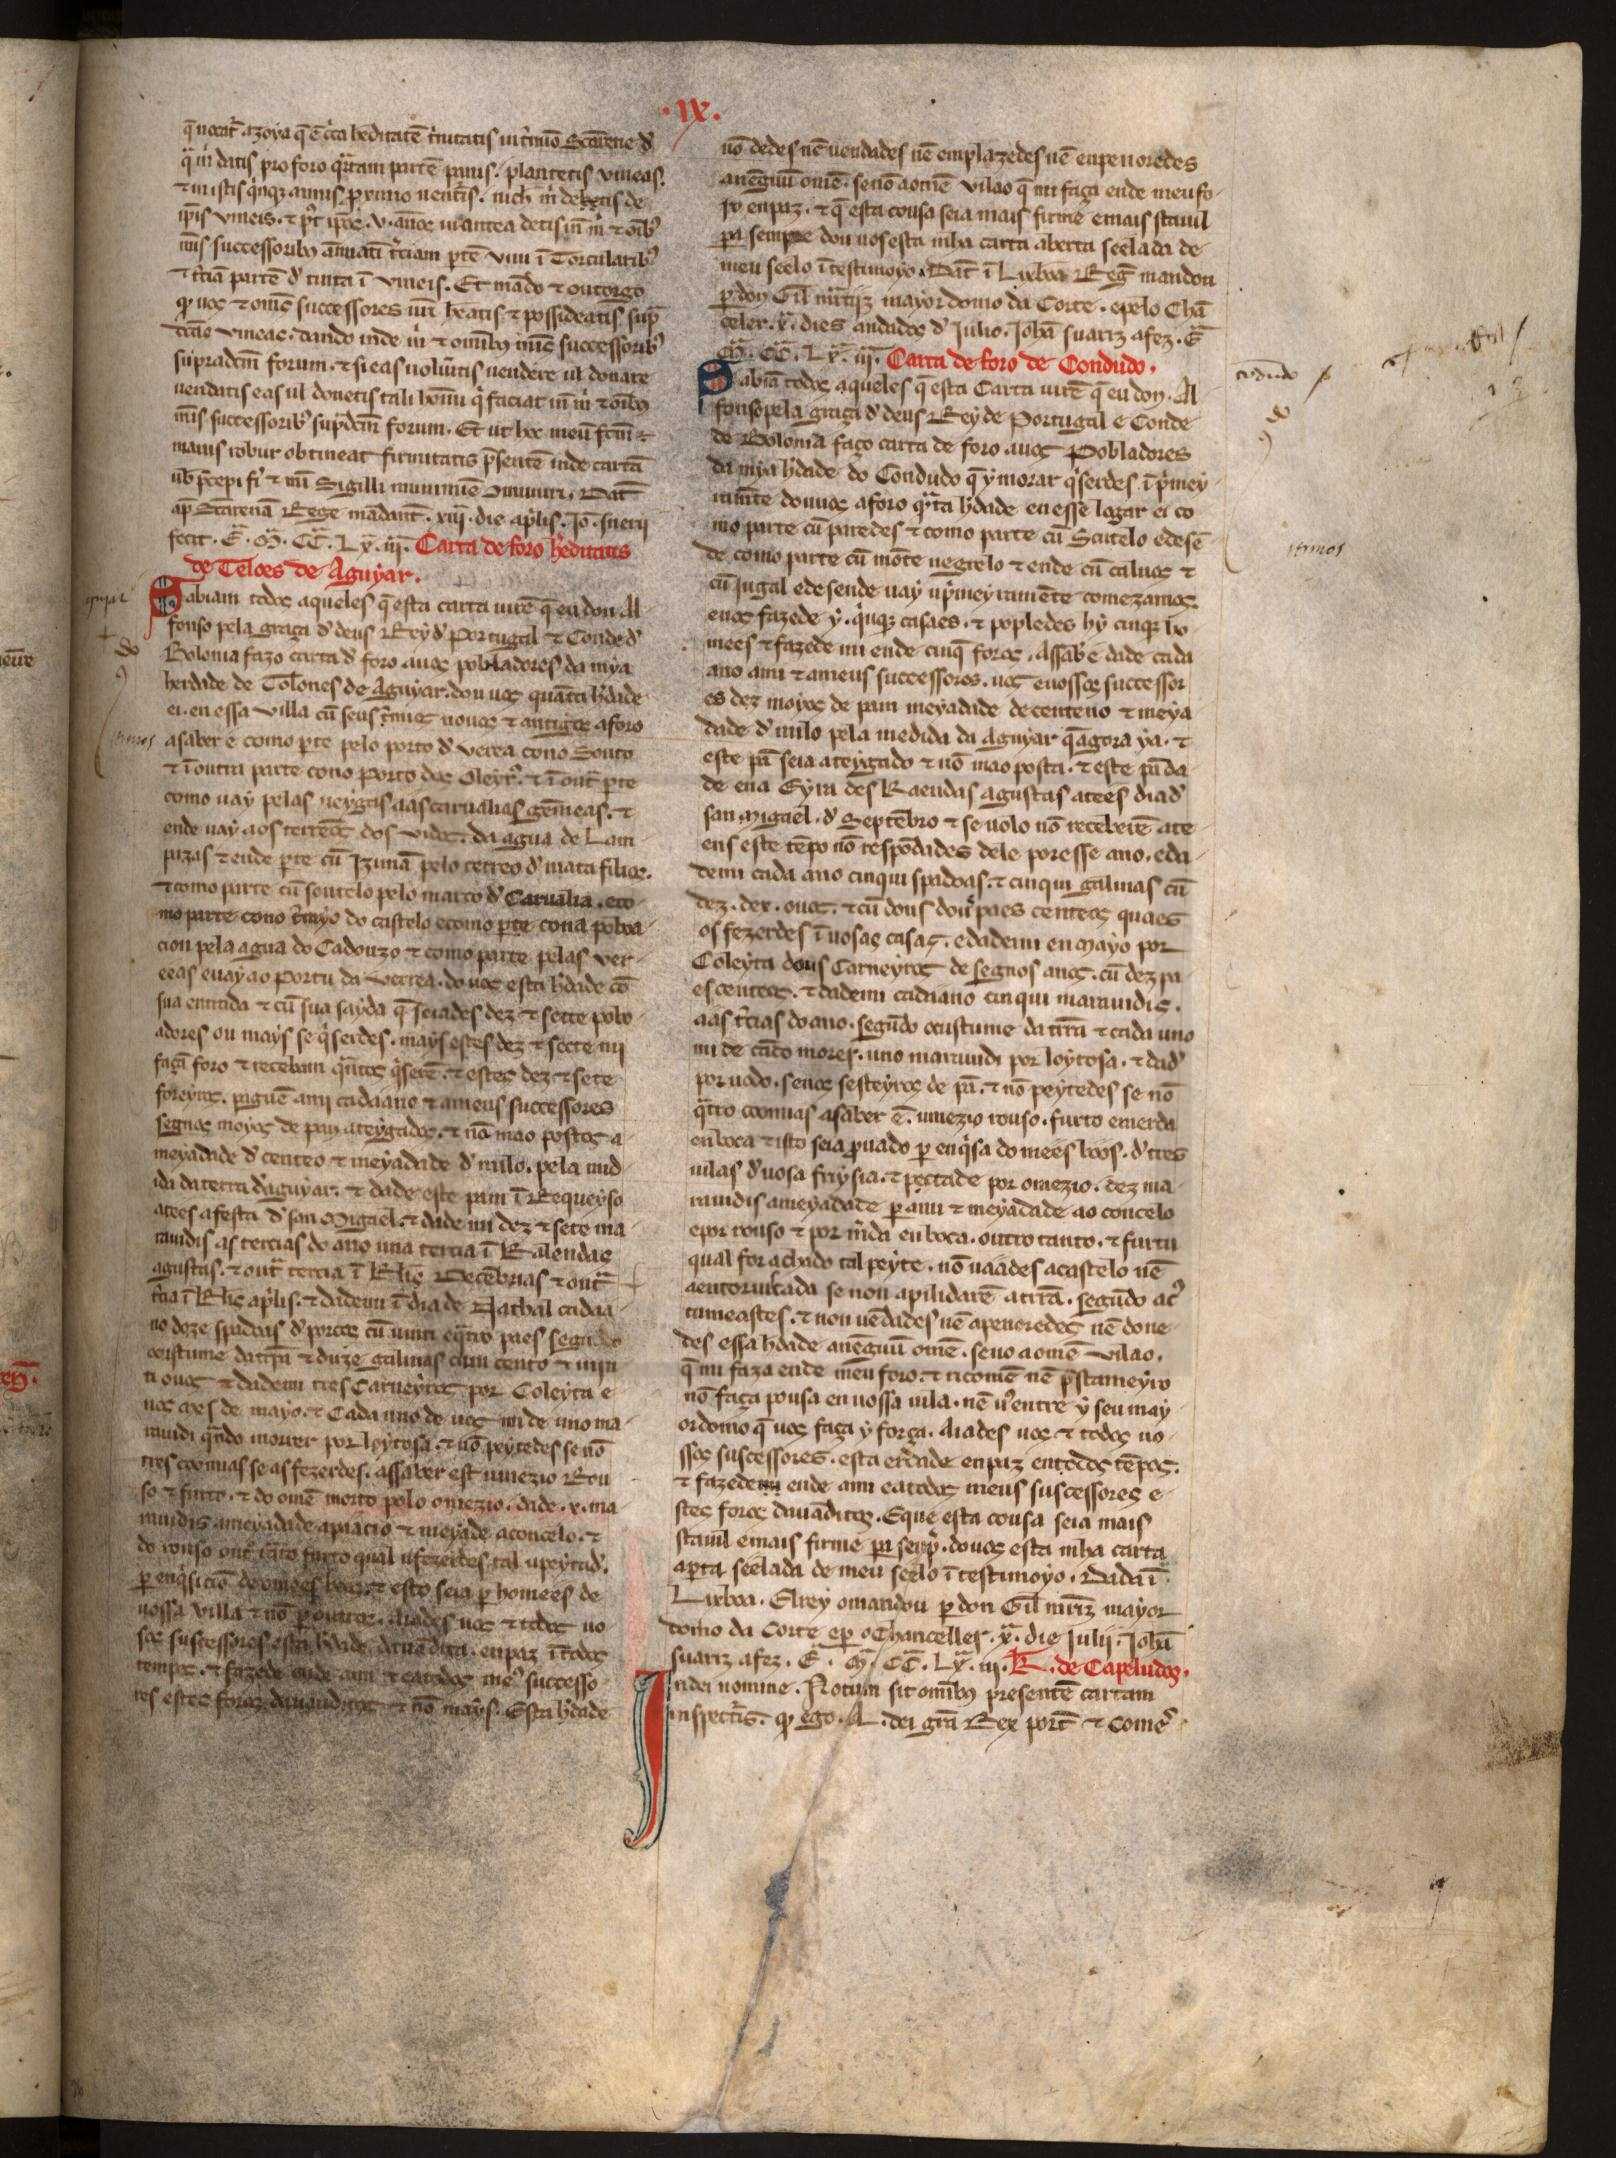 ·IX·
q̄ uocat᷑ azoya q̄ ē cͥca hēditatē tͥnitatis in tͥmıō Sc̄arene d̓
q̄ m̄ datis pro foro qͣrtam partē panis. plantetis vineas.
⁊ in istis qͥnqꝫ annis p̱ximo uentͥis. nich̄ m̄ detis de
ip̄is vineis. ⁊ pꝰt ip̄os .v. ānos in antea detis in̄ m̄ ⁊ oībꝫ
meis successoribꝫ ānuatī tͥciam ꝑtē vini ī Torcularibꝫ
⁊ tͥciā partē d̓ tinta ī vineis. Et mādo ⁊ outorgo
qꝫ uos ⁊ om̄s successores ur̄i h̄eatis ⁊ possideatis sup̄
dc̄as vineas. dando inde m̄ ⁊ omībꝫ meis successoribꝫ
supradc̄m forum. ⁊ si eas uolu͂itis uendere ul̄ donare
uendatis eas ul̄ donetis tali hōini qͥ faciat in̄ m̄ ⁊ oībꝫ
meis successoribꝫ sup̄dc̄m forum. Et ut hoc meū fc̄m
maius robur obtineat firmitatis p̄sentē inde cartā
uob̄ p̄cepi fiͥ ⁊ mī Sigilli munimīe ōmuniri. Dat̄
ap̄ Sc̄arenā Rege mādant̄. xiij. die ap̄lis. Jō. suerij
fecit. Ē. M̄. CC̄. Lx̄. iij. Carta de foro h̓editatis
de Teloes de Aguyar.
Sabiam todos aqueles q̄ esta carta uirē q̄ eu don Al
fonso pela graça d̓ deus Rey d̓ Portugal ⁊ Conde d̓
Bolonia fazo carta d̓ foro auos pobladores da mya
herdade de Tolones de Aguyar. dou uos quāta h̓dade
ei. en essa villa cū seus tͥmios nouos ⁊ antigos a foro
asaber e como ꝑte pelo porto d̓ verea cono Souto
⁊ ī outra parte cono porto dos Oleyrͦs. ⁊ ī outͣ ꝑte
como uay pelas ueygas aas carualias gēmeas. ⁊
ende uay aos terreos dos vidos. da agua de Lam
pazas ⁊ ende ꝑte cū Jzunā pelo terreo d̓ mata filios.
⁊ como parte cū soutelo pelo marco d̓ Carualia. eco
mo parte cono tͥmyo do castelo ecomo ꝑte cona pobra
cion pela agua do Cadouzo ⁊ como parte pelas ver
eeas euay ao Portu da verrea. do uos esta h̓dade cō
sua entrada ⁊ cū sua sayda q̄ seiades dez ⁊ sette pobo
adores ou mays se qͥserdes. mays estes dez ⁊ sette mi
fagā foro ⁊ recebam qͣntos qͥserē. ⁊ estes dez ⁊ sete
foreyros. paguē ami cadaano ⁊ a meus successores
segnos moyos de pan ateygados. ⁊ nō mao postos a
meyadade d̓ centeo ⁊ meyadade d̓ milo. pela mid
ida da terra d̓ aguyar. ⁊ dade este pam ī Requeyso
atees a festa d̓ san Migael. ⁊ dade mi dez ⁊ sete ma
rauidis as tercias do ano una tercia ī Kalendas
agustas. ⁊ outͣ tercia ī Kl̄as Decēbrias ⁊ outͣ
tͥcia ī Kl̄as ap̄lis. ⁊ dademi ī dia de Nathal cadaa
no doze spadoas d̓ porcos cū uinti eqͣtro paes segūdo
costume da tr̄ra ⁊ duze galinas cum cento ⁊ uijn
ti ouos ⁊ dademi tres Carneyros por Coleyta e
uos oyes de mayo. ⁊ Cada uno de uos mi de uno ma
rauidi qͣndo morrer por loytosa. ⁊ nō peytedes se nō
tres cooimas se as fezerdes. assaber est omezio Rou
so ⁊ furto. ⁊ do omē morto polo omezio. dade .x. ma
rauidis. ameyadade apalacio ⁊ meyade aconcelo. ⁊
do rouso outͦ tāto furto qual ufezerdes tal upeytad̓.
ꝑ enqͥsiciō de omees boos ⁊ esto seia ꝑ homees de
uossa villa ⁊ nō ꝑ outros. Aiades uos ⁊ todos uo
sos sustessores esta h̓dade dauādita. en paz ī todos
tempos. ⁊ fazede ende ami ⁊ eatodos meꝰ successo
res estes foros dauanditos ⁊ nō mays. Esta h̓dade
nō dedes nē uendades nē emplazedes nē enpenoredes
anēguū omē. senō a omē vilao q̄ mi faça ende meu fo
ro en paz. ⁊ q̄ esta cousa seia mais firme emais stauil
pa sempre dou uos esta mha carta aberta seelada de
meu seelo ī testimoyo. Dat̄ ī Lixboa Reg̓ mandou
ꝑ don Gil mr̄tijz mayordomo da Corte. epelo Chā
celer. x̄. dies andados d̓ Julio. Johā suariz afez. Ē
M̄. CC̄. Lx̄. iij. Carta de foro de Condudo.
Sabiā todos aqueles q̄ esta Carta uirē q̄ eu don. Al
fonso pela graça d̓ deus Rey de Portugal e Conde
de Bolonia faço carta de foro auos Pobladores
da mya h̓dade do Condudo q̄ y morar qͥserdes. ī pͥmey
ramēte douuos aforo qͣta h̓dade en esse logar ei co
mo parte cū paredes ⁊ como parte cū Scutelo edesē
de como parte cū mōte negrelo ⁊ ende cū caluos ⁊
cū Jugal edesende uay upͥmeyramēte comezamos.
euos fazede y. qͥnqꝫ casaes. ⁊ popledes hy cinqꝫ ho
mees ⁊ fazede mi ende cinq̄ foros. Assab̓ e dade cada
ano ami ⁊ ameus successores. uos euossos successor
es dez moyos de pan meyadade de centeno ⁊ meya
dade d̓ milo pela medida da Aguyar q̄ agora ya. ⁊
este pā seia ateygado ⁊ nō mao posta. ⁊ este pā da
de ena Eyra des Kaendas agustas atees dia d̓
san Migael. d̓ Septēbro ⁊ se uolo nō receberē ate
ens este tēpo nō respōdades dele por esse ano. eda
demi cada ano cinqui spadoas. ⁊ cinqui galinas cū
dez. dez. ouos. ⁊ cū dous dous paes centeos quaes
os fezerdes ī uosas casas. edademi en Mayo por
Coleyta dous Carneyros de segnos anos. cū dez pa
es centeos. ⁊ dademi cadaano cinqui marauidis.
aas tͥcias do ano. segūdo costume da tr̄ra ⁊ cada uno
mi de cādo mores. uno marauidi por loytosa. ⁊ dad̓
por uodo. senos sesteyros de pā. ⁊ nō peytedes se nō
qͣtro cooimas asaber ē. umezio rouso. furto emerda
enboca ⁊ isto seia p̱uado ꝑ enqͥsa do mees boos. d̓ tres
uilas d̓ uosa friysia. ⁊ pectade por omezio. dez ma
rauidis ameyadade ꝑ ami ⁊ meyadade ao concelo
epor rouso ⁊ por mͥda en boca. outro tanto. ⁊ furtu
qual for achado tal peyte. nō uaades acastelo nē
aentoruiscada se non apilidarē a tr̄ra. segūdo acꝰ
tumeastes. ⁊ non uēdades nē apenoredes nē done
des essa h̓dade anēguū omē. seno a omē vilao.
q̄ mi faza ende meu foro. ⁊ ricomē nē p̄stameyro
nō faça pousa en uossa uila. nē uꝰ entre y seu may
ordomo q̄ uos faça y força. Aiades uos ⁊ todos uo
ssos sustessores. esta erdade en paz en todos tēpos.
⁊ fazedemi ende ami eatodos meus sustessores e
stes foros dauāditos. Eque esta cousa seia mais
stauil emais firme pa senpͤ. douos esta mha carta
apͭta seelada de meu seelo ī testimoyo. Dada ī
Lixboa. Elrey omandou ꝑ don Gil mr̄iz mayor
domo da Corte eꝑ oChanceller. x̄. die Julij. Johā
suariz afez. Ē. M̄. CC̄. Lx̄. iij. K̄. de Capeludos.
In dei nomine. Notum sit omībꝫ presentē cartam
inspectͥis. qꝫ ego. A. dei grā Rex port̄ ⁊ Comeˢ
cōdudo